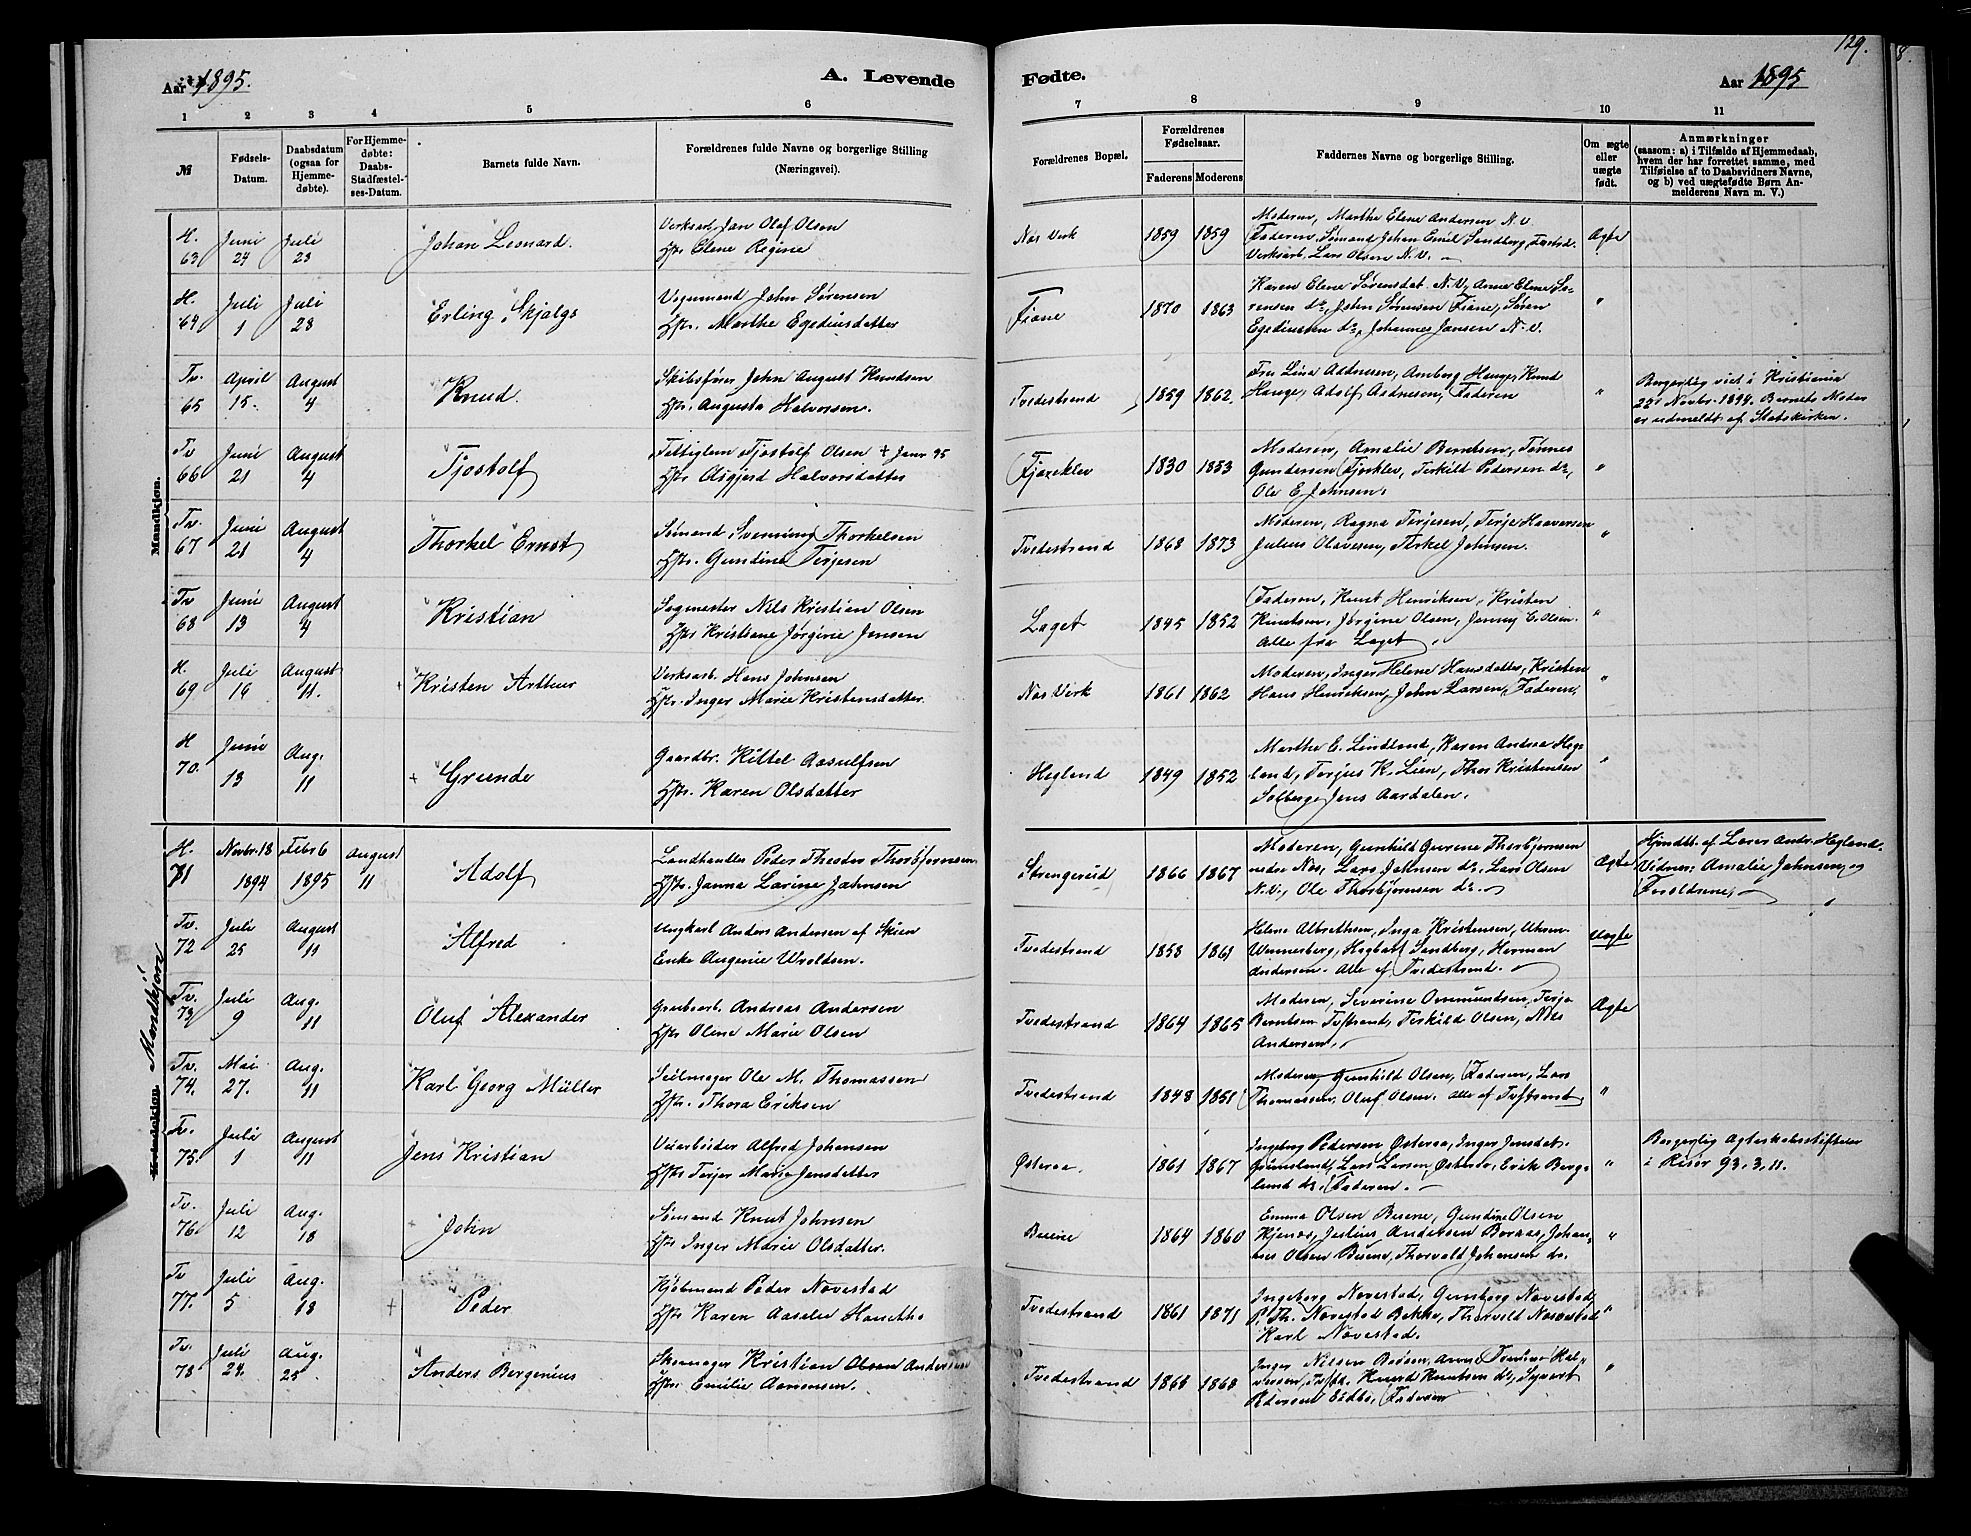 129.
8.
Aar 1895.
A. Levende
Fødte.
Aar 1895
1 2 3 4 5 6
7 8 9 10 11
№
Fødsels-
Datum.
Daabsdatum
(ogsaa for
Hjemme-
døbte).
For Hjemme-
døbte:
Daabs-
Stadfæstel-
ses-Datum.
Barnets fulde Navn.
Forældrenes fulde Navne og borgerlige Stilling
(Næringsvei).
Forældrenes Bopæl.
Forældrenes
Fødselsaar.
Faderens Moderens
Faddernes Navne og borgerlige Stilling.
Om ægte
eller
uægte
født.
Anmærkninger
(saasom: a) i Tilfælde af Hjemmedaab,
hvem der har forrettet samme, med
Tilføielse af to Daabsvidners Navne,
og b) ved uægtefødte Børn An-
melderens Navn m. V.)
Mandkjøn.
H. 63 Juni 24 Juli 28
Johan Leonard.
Verksarb. Jan Olaf Olsen
Hstr. Elene Regine
Næs Verk 1859 1859
Moderen, Marthe Elene Andersen N.V.
Faderen, Sømand Johan Emil Sandberg,
Verksarb. Lars Olsen N.V.
Ægte
H. 64 Juli 1 Juli 28
Erling Skjalgs
John Sørensen
Hstr. Marthe Egediusdatter
Fiane 1870 1863
Karen Elene Sørensdat. N.V, Anne Elene Sø-
rensen do, John Sørensen Fiane, Søren
Egediussen do, Johannes Jansen N.V.
"
Tv. 65 April 15. August 4
Knud.
Skibsfører John August Knudsen
Hstr. Augusta Halvorsen.
Tvedestrand 1859 1862
Fru Lina Aadnesen, Hauge, Knud
Hauge, Adolf Aadnesen, Faderen
"
Borgerlig viet i Kristiania
22' Novbr. 1894. Barnets Moder
er udmeldt af Statskirken.
Tv 66 Juni 21 August 4
Tjostolf
Tjostolf Olsen + Janr 95
Hstr. Asgjerd Halvorsdatter
1830 1853
Moderen, Amalie Berntsen, Tønnes
Gundersen Terkild Pedersen do,
Ole E. Johnsen.
"
Tv. 67 Juni 21 August 4
Thorkel Ernst
Sømand Svenning Thorkelsen
Hstr. Gundine Terjesen
Tvedestrand 1868 1873
Moderen, Ragna Terjesen, Terje Haaversen
Julius Olavesen, Terkel Johnsen.
"
Tv 68 Juni 13 August 4
Kristian
Sagmester Nils Kristian Olsen
Hstr Kristiane Jørgine Jensen
Laget 1845 1852
Faderen, Knut Henriksen, Kristen
Knutsen, Jørgine Olsen, Jenny C. Olsen.
Alle fra Laget.
"
H. 69 Juli 14 August 11.
Kristen Arthur
Verksarb. Hans Johnsen
Hstr. Inger Marie Kristensdatter.
Næs Verk 1861 1862
Moderen, Inger Helene Hansdatter, Kristen
Hans Henriksen, John Larsen, Faderen
"
H 70. Juni 13 Aug. 11
Greunde
Gaardbr. Kittel Aasulfsen
Hstr. Karen Olsdatter
Hegland 1849 1852
Marthe E. Lindland, Karen Andrea Heg-
land, Terjus K. Lien, Thor Kristensen
Solberg, Jens Aardalen.
"
Kvindekjøn. Mandkjøn
H. 71 Novbr. 18 1894 Febr 6 1895 August 11
Adolf
Landhandler Peder Theodor Thorbjørnsen
Hstr. Janna Larine Johnsen
Strengereid 1866 1867
Moderen, Gunhild Gurene Thorbjørnsen
nedre Næs, Lars Johnsen do, Lars Olsen
N.V., Ole Thorbjørnsen do.
Ægte
Hjmdbt. af Lærer Andr. Hegland.
Vidner: Amalie Johnsen og
Forældrene.
Tv. 72 Juli 25 August 11
Alfred
Ungkarl Anders Andersen af Skien
Enke Augenie Uvoldsen.
Tvedestrand 1858 1861
Helene Albrethsen, Inga Kristensen,
Wennesberg, Hagbart Sandberg, Herman
Andersen. Alle af Tvedestrand.
Uægte
Tv. 73 Juli 9 Aug. 11
Oluf Alexander
Andreas Andersen
Hstr Olene Marie Olsen
Tvedestrand 1864 1865
Moderen, Severine Ommundsen, Terje
Berntsen Tvstrand, Terkild Olsen, Nils
Andersen.
Ægte
Tv. 74. Mai 27. Aug. 11
Karl Georg Müller
Seilmager Ole M. Thomassen
Hstr. Thora Eriksen
Tvedestrand 1848 1851
Moderen, Gunhild Olsen, Faderen, Lars
Thomassen, Oluf Olsen. Alle af Tvstrand
"
Tv. 75. Juli 1 August 11
Jens Kristian
Veiarbeider Alfred Johansen
Hstr. Terjer Marie Jensdatter
Østeraa. 1861 1867
Ingeborg Pedersen Østeraa, Inger Jensdat.
Grønsland, Lars Larsen Østeraa, Erik Berg-
lund do. Faderen.
"
Borgerlig Ægteskabsstiftelse
i Risør 93. 3. 11.
Tv. 76. Juli 12 Aug. 18
John
Sømand Knut Johnsen
Hstr Inger Marie Olsdatter.
Buene 1864 1860
Emma Olsen Buene, Gundine Olsen
Kjenes, Julius Andersen Boraas, Johan-
nes Olsen Buene, Thorvald Johansen do.
"
Tv 77. Juli 5 Aug. 18
Peder
Kjøbmand Peder Novestad
Hstr Karen Aaselie
Tvedestrand 1861 1871
Ingeborg Novestad, Gunborg Novestad
P. Th. Novestad Bakke, Thorvild Novestad
Karl Novestad.
"
Tv. 78 Juli 24. Aug. 25
Anders Bergenius
Skomager Kristian Olsen Andersen
Hstr. Emilie Aanonsen.
Tvedestrand 1868 1868
Inger Nilsen Bodsen, Hal-
vorsen, Knud Knutsen do, Syvert
Pedersen Eidbo, Faderen
"